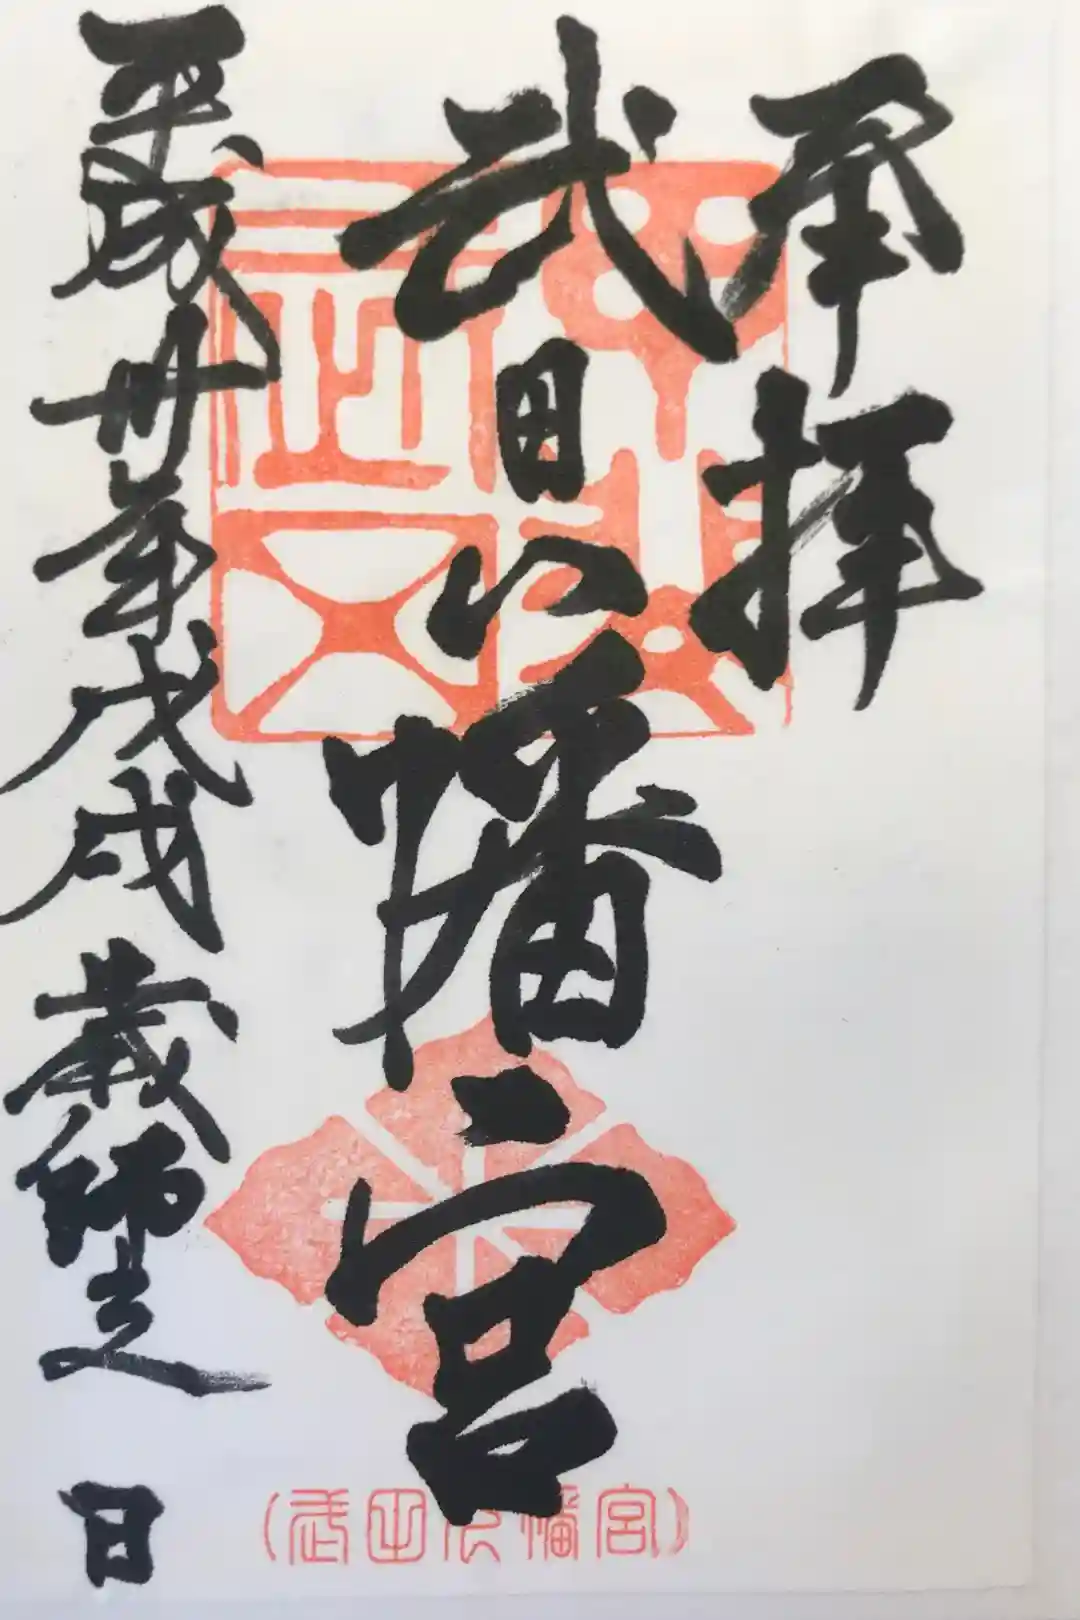 奉拝
武田八幡宮
平成卅年戊戌歳師走 日
(武田八幡宮)